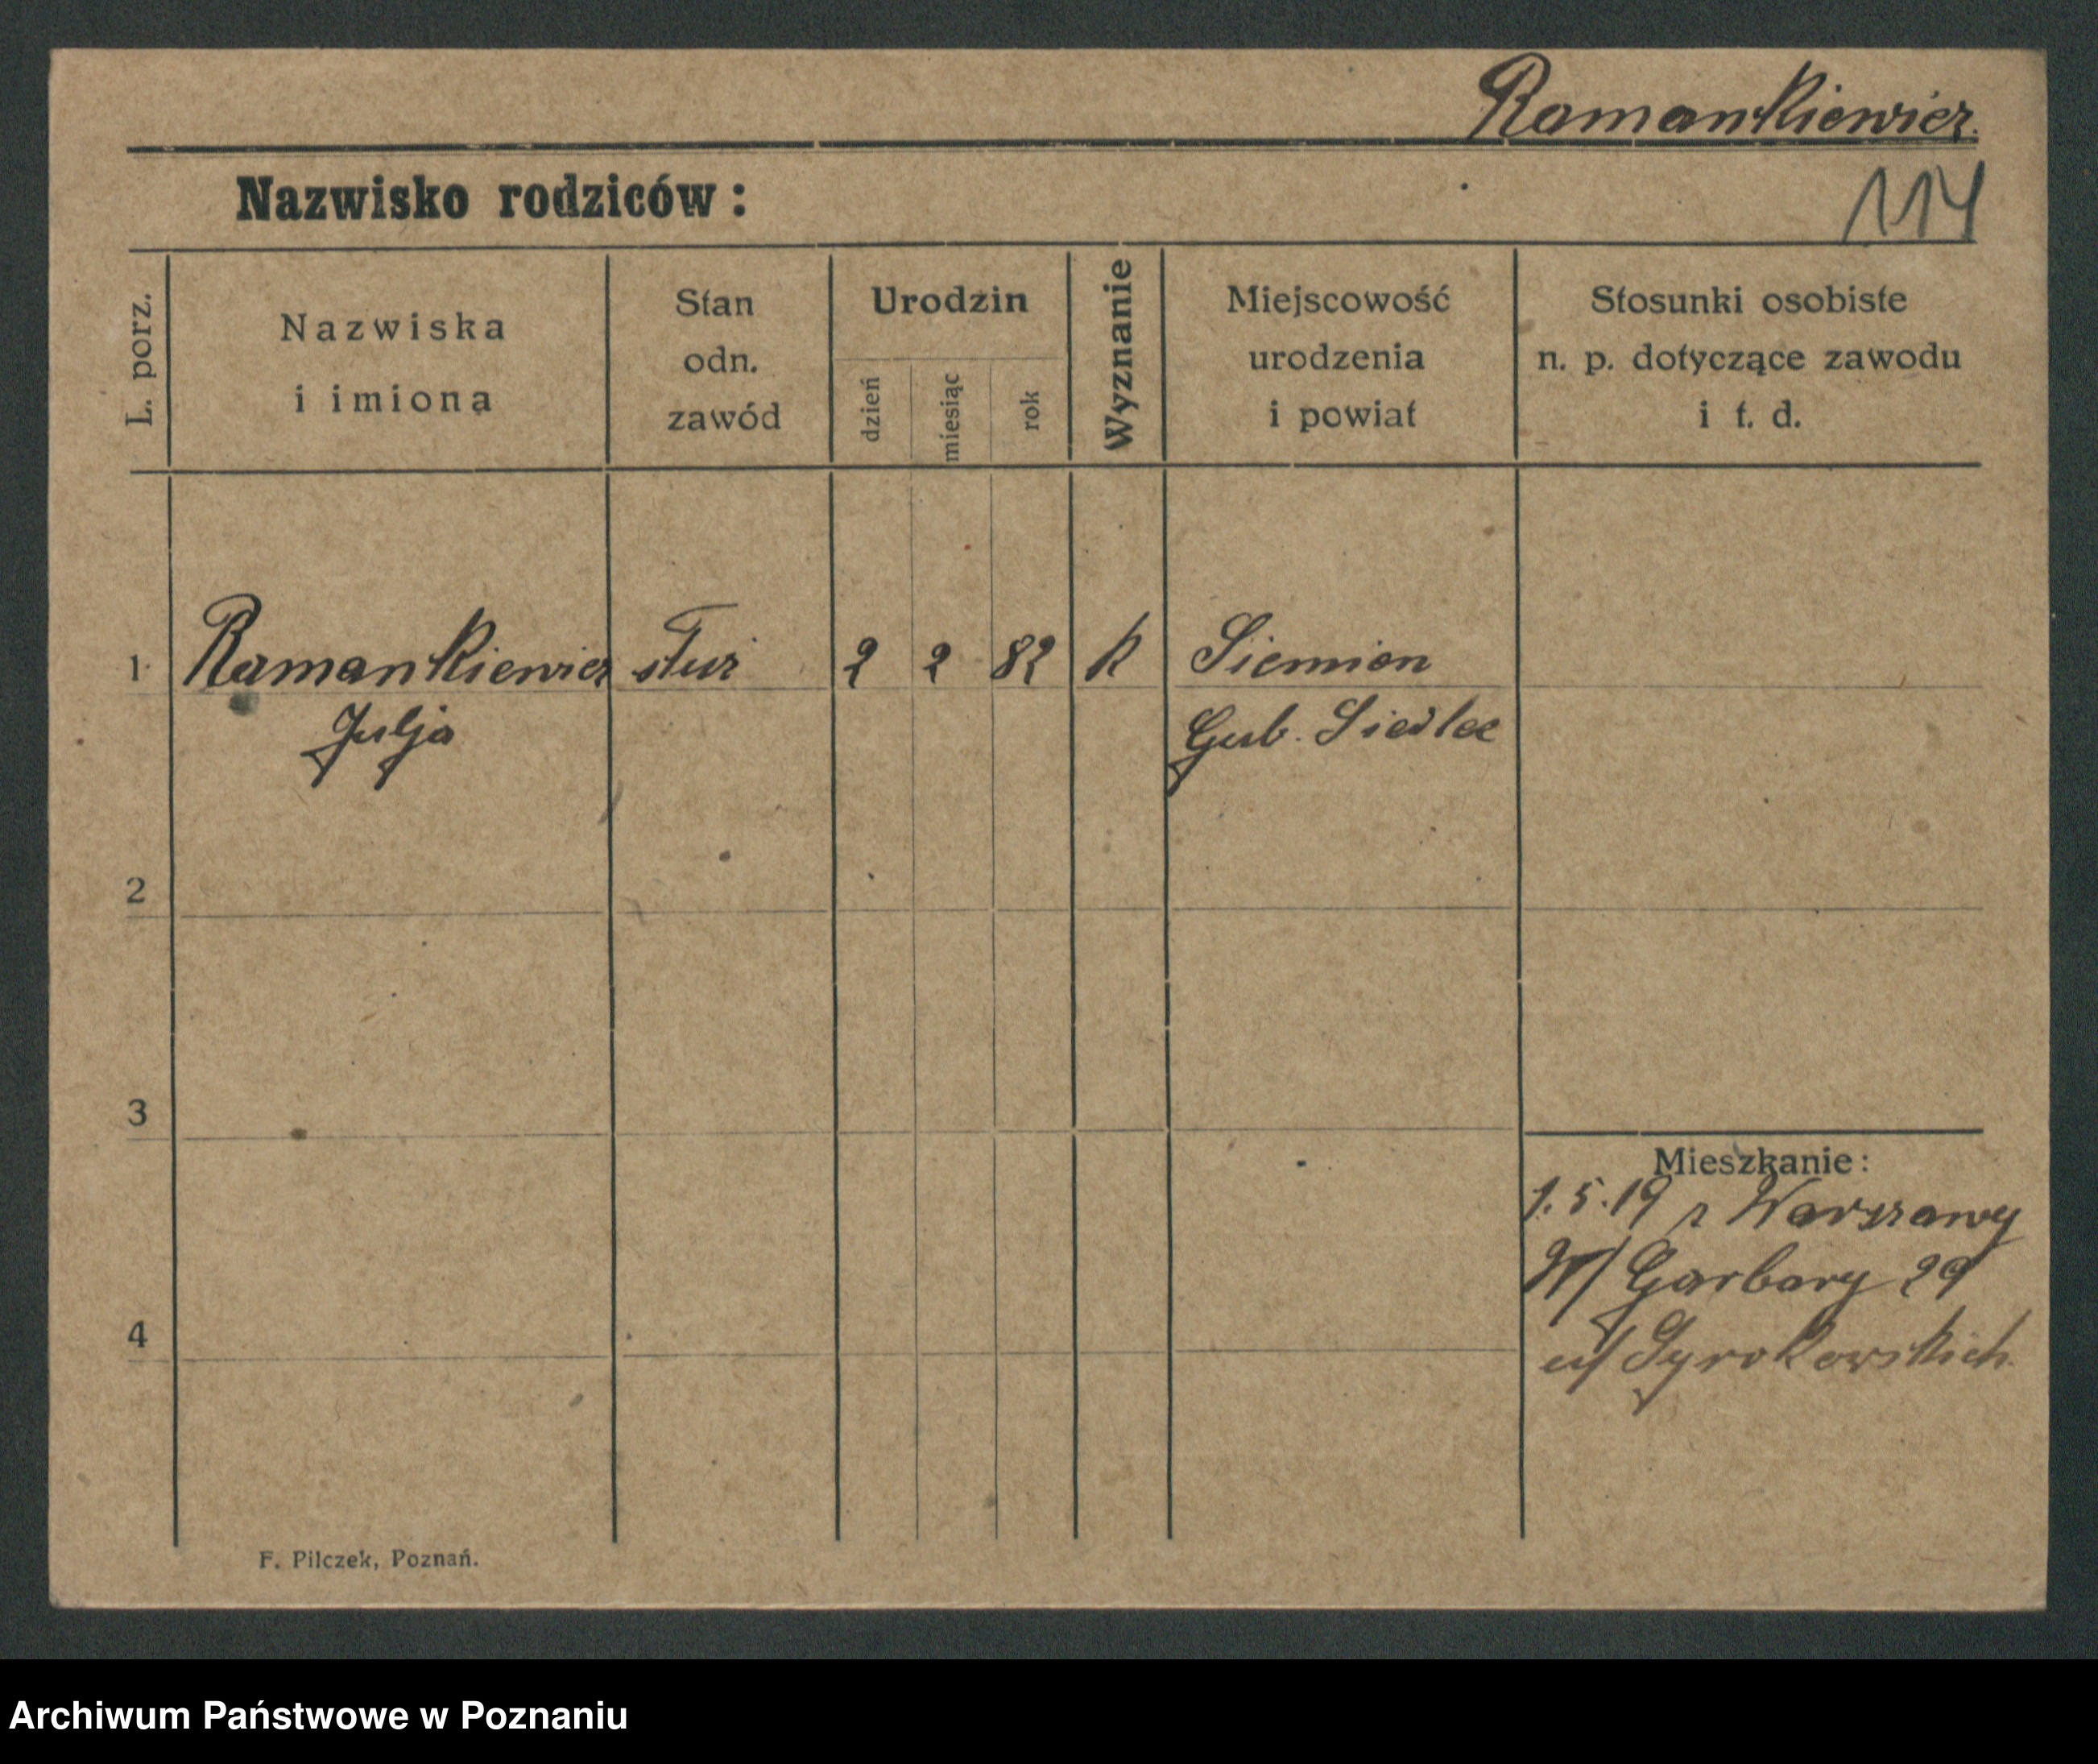 Ramankiewicz.
Nazwisko rodziców:
114
L. porz.
Nazwiska
i imiona
Stan
odn.
zawód
Urodzin
dzień
miesiąc
rok
Wyznanie
Miejscowość
urodzenia
i powiat
Stosunki osobiste
n. p. dotyczące zawodu
i t. d.
1 Ramankiewicz 2 2 82 k Siemion
Julja Gub. Siedlec
2
3
4
Mieszkanie:
1.5.19 z Warszawy
W/ Garbary 29
u/
F. Pilczek, Poznań.
Archiwum Państwowe w Poznaniu